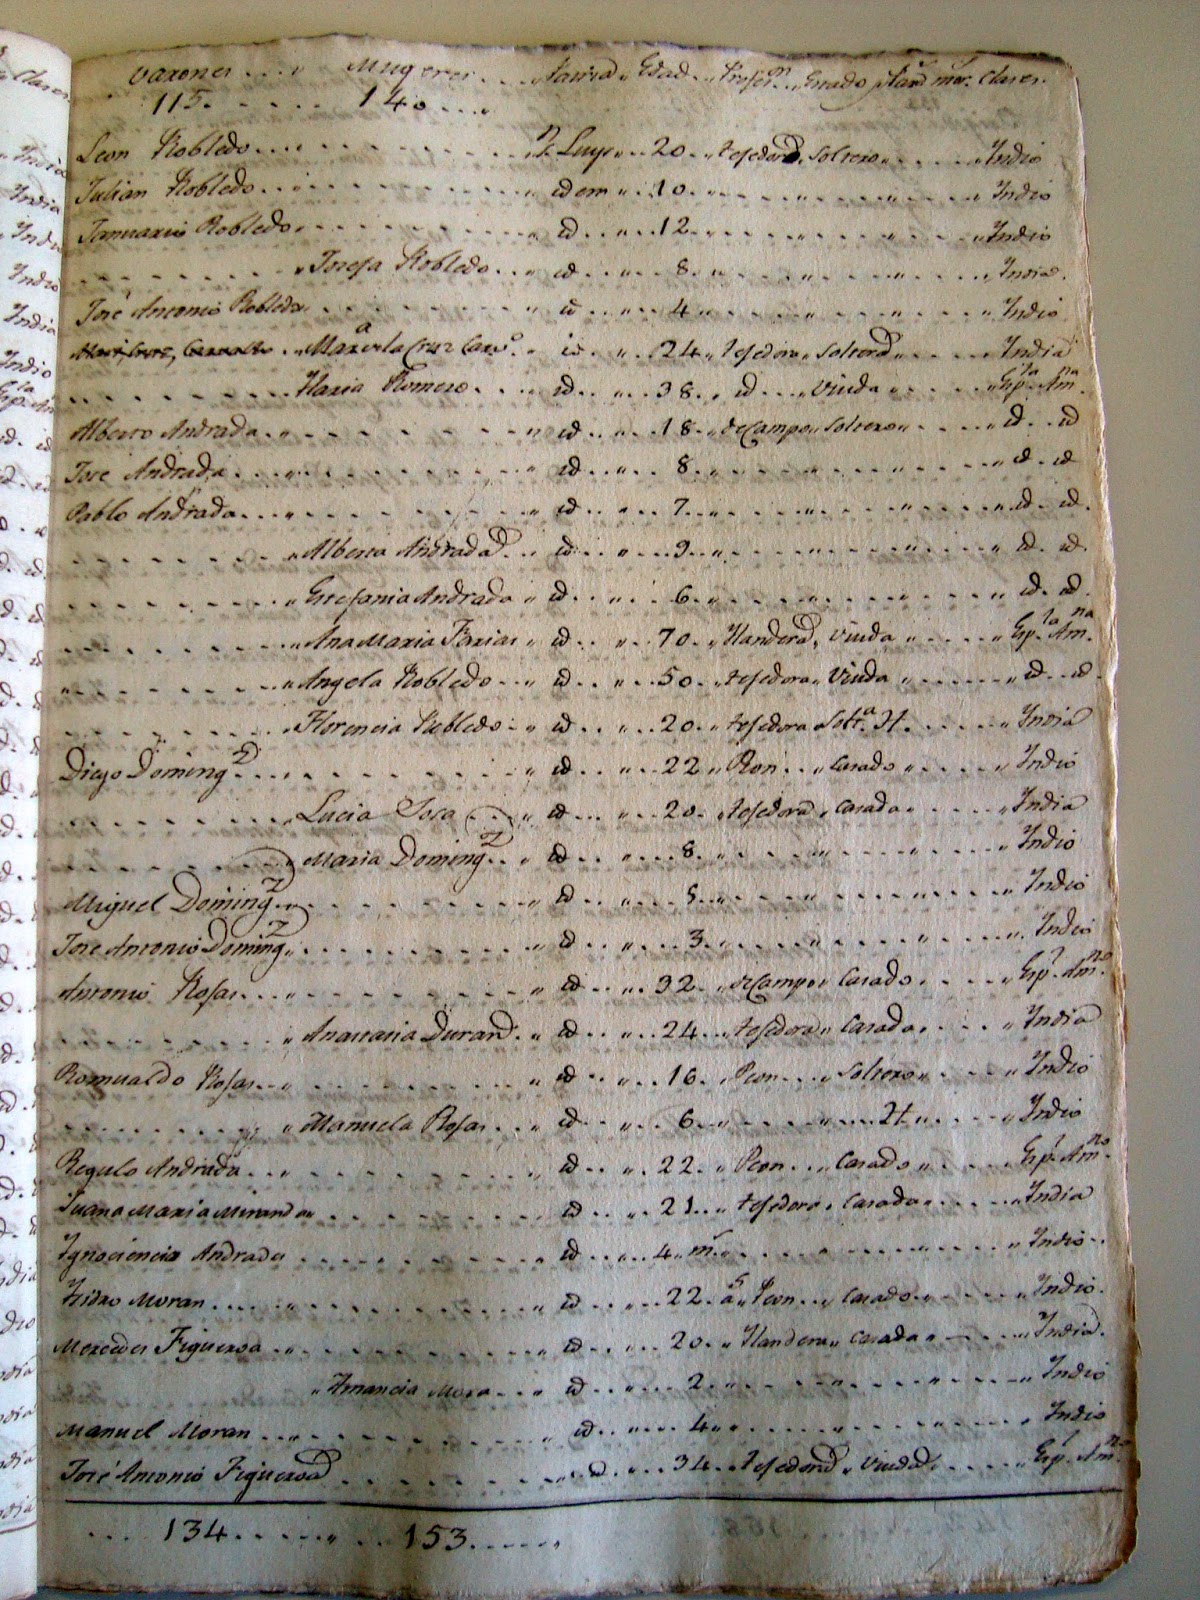 Varones Mugeres Patria Edad Profes.n Estado Clases.
115. 140
Leon Robledo n.l Luys 20 tesedora. Soltero Indio
Julian Robledo idem 10 Indio
Januario Robledo id 12 Indio
Josefa Robledo id 8 India.
José Antonio Robledo id 4 Indio
Marcela Cruz Carv.o id 24 tesedora Soltera India
Maria Romero id 38 id Viuda Esp.la Am.na
Alberto Andrada id 18 deCampo Soltero id id
José Andrada id 8 id id
Pablo Andrada id 7 id id.
Alberta Andrada id 9 id id.
Estefania Andrada id 6 id id.
Ana Maria Farias id 70 Ilandera Viuda Esp.la Am.na
Angela Robledo id 50 tesedora Viuda id id.
Florencia Robledo id 20 tesedora Solt.a India
Diego Doming.z id 22 Peon Casado Indio
Lucia Sosa id 20 tesedora Casada India
Maria Doming.z id 8 Indio
Miguel Doming.z id 5 Indio
Jose Antonio Doming.z id 3 Indio
Antonio Rosas id 32 deCampo Casado Esp.l Am.no
Anastasia Durand id 24 tesedora Casada India
Romualdo Rosas id 16 Peon Soltero Indio
Manuela Rosas id 6 Indio
Regulo Andrada id 22 Peon Casado Esp.l Am.no
Juana Maria Miranda id 21 tesedora Casada India
Ignociencio Andrada id 4 m.s Indio
Isidro Moran id 22 a.s Peon Casado Indio.
Mercedes Figueroa id 20 Ilandera Casada India.
Amancia Mora id 2 Indio
Manuel Moran id 4 Indio
José Antonio Figueroa id 34 tesedora Viuda Esp.l Am.no
134 153